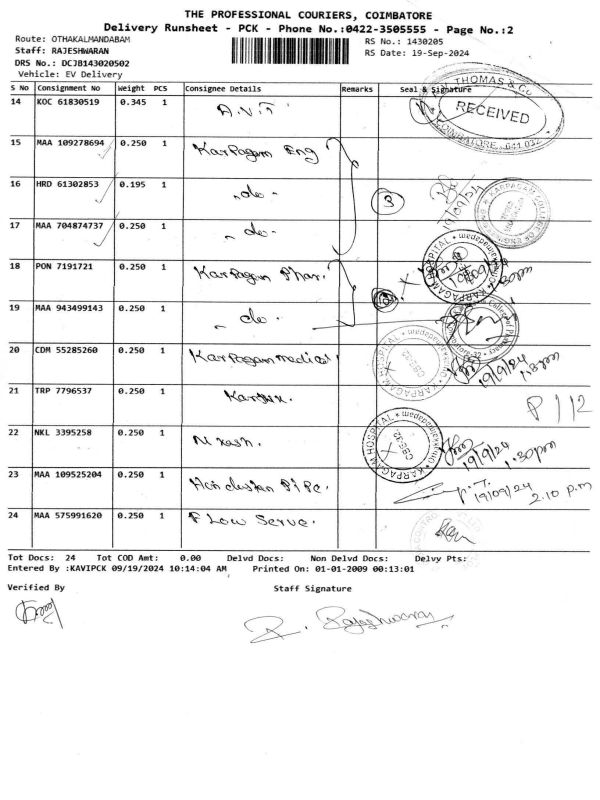 THE PROFESSIONAL COURIERS, COIMBATORE
Delivery Runsheet - PCK - Phone No.:0422-3505555 - Page No.:2
Route: OTHAKALMANDABAM RS No.: 1430205
Staff: RAJESHWARAN RS Date: 19-Sep-2024
DRS No.: DCJB143020502
Vehicle: EV Delivery
S No Consignment No Weight PCS Consignee Details Remarks Seal & Signature
14 KOC 61830519 0.345 1 A.V.T
THOMAS & Co
RECEIVED
COIMBATORE - 641 032
15 MAA 109278694 0.250 1 Karpagam Eng
16 HRD 61302853 0.195 1 - do - 3 19/09/24
17 MAA 704874737 0.250 1 - do -
18 PON 7191721 0.250 1 Karpagam Phar.
KARPAGAM HOSPITAL
19 MAA 943499143 0.250 1 - do -
20 CDM 55285260 0.250 1 Karpagam medical
KARPAGAM HOSPITAL
CBE-32
19/9/24
21 TRP 7796537 0.250 1 P 112
22 NKL 3395258 0.250 1
KARPAGAM HOSPITAL
CBE-32
19/9/24
23 MAA 109525204 0.250 1 Hindustan Pipe. 19/09/24 2.10 P.m
24 MAA 575991620 0.250 1 Flow Serve.
Tot Docs: 24 Tot COD Amt: 0.00 Delvd Docs: Non Delvd Docs: Delvy Pts:
Entered By :KAVIPCK 09/19/2024 10:14:04 AM Printed On: 01-01-2009 00:13:01
Verified By Staff Signature
R. Rajeshwaran